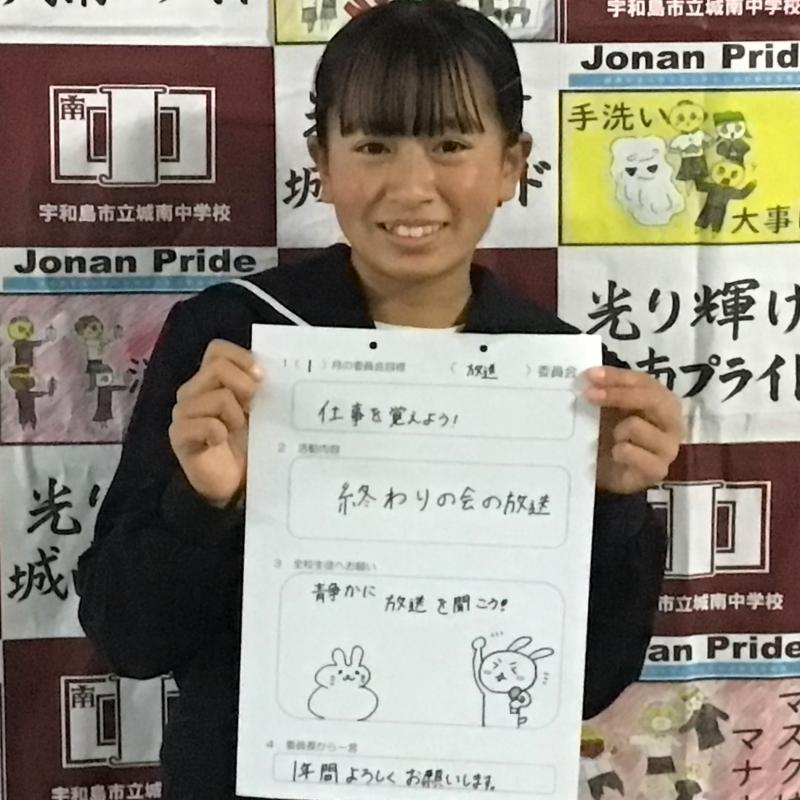 宇和島市立城南中学校
Jonan Prid
手洗い
大事
南
宇和島市立城南中学校
Jonan Pride
ド
光り輝け
南プライド
光り
城
市立城南中学校
an Pride
南
マスク
マナ
1（1）月の委員会目標（放送）委員会
仕事を覚えよう!
2 活動内容
終わりの会の放送
3 全校生徒へお願い
静かに
放送を聞こう!
4 委員長から一言
1年間よろしくお願いします。